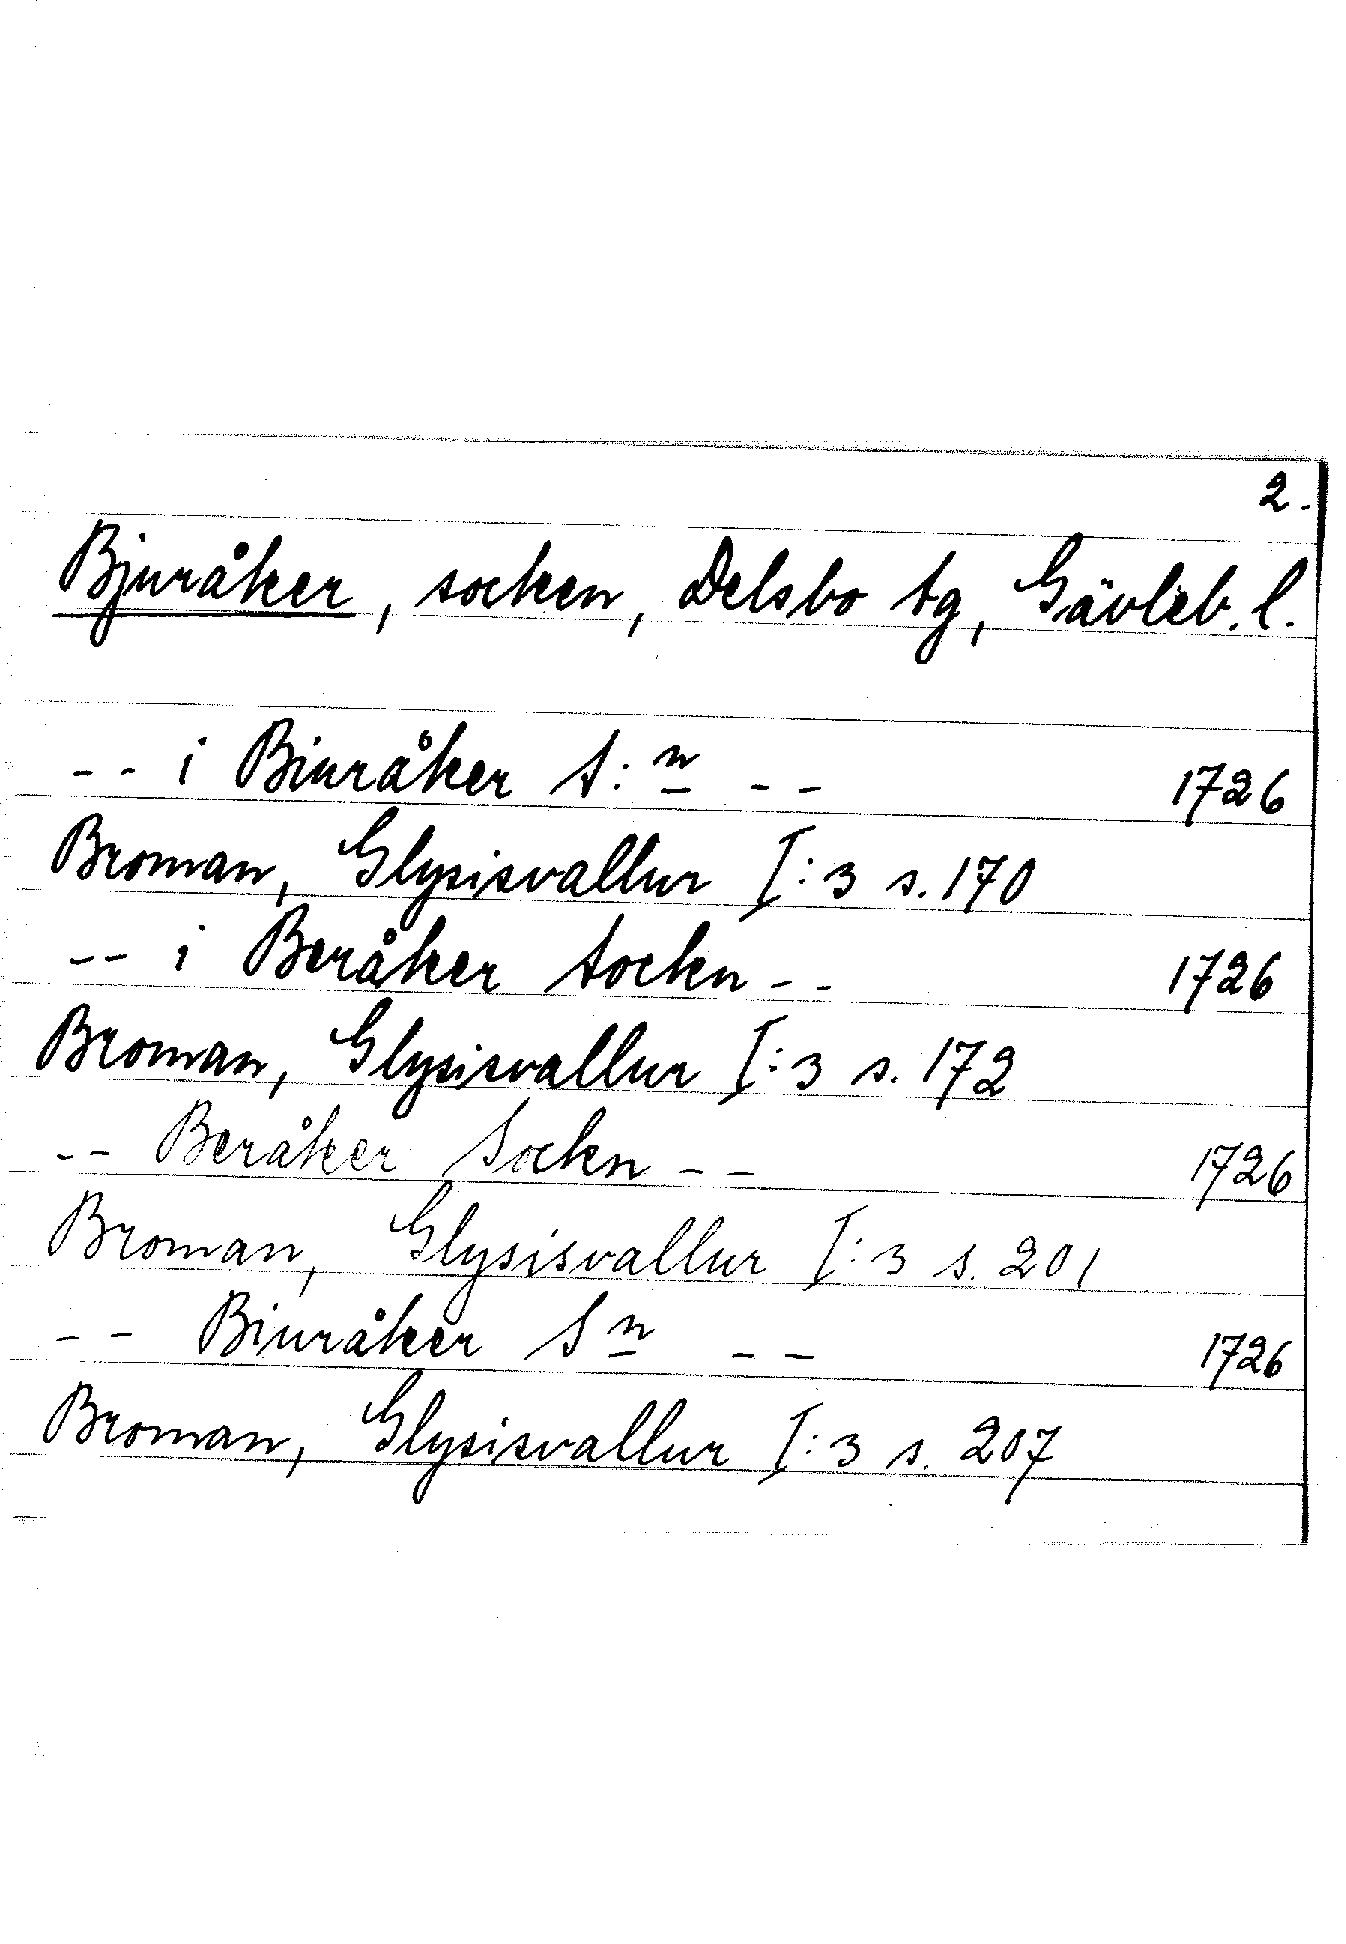 2.
Bjuråker, socken, Delsbo tg, Gävleb. l.
-- i Biuråker S:n -- 1726
Broman, Glysisvallur I:3 s. 170
-- i Beråker Sockn -- 1726
Broman, Glysisvallur I:3 s. 172
-- Beråker Sockn -- 1726
Broman, Glysisvallur I:3 s. 201
-- Biuråker Sn -- 1726
Broman, Glysisvallur I:3 s. 207